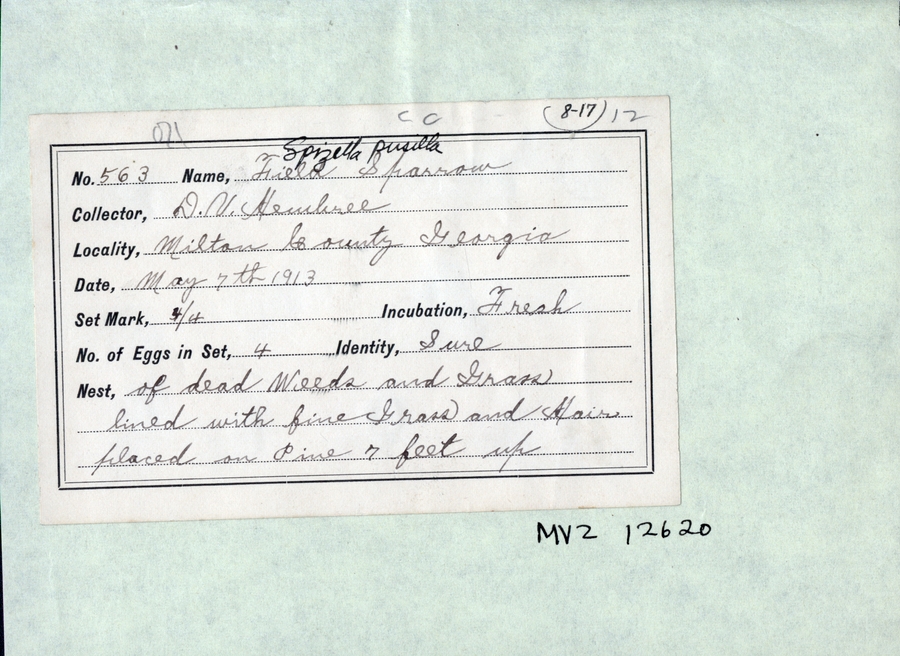 071 C C (8-17) 12
Spizella pusilla
No. 563 Name, Field Sparrow
Collector, D. V. Hembree
Locality, Milton County Georgia
Date, May 7th 1913
Set Mark, 4/4 Incubation, Fresh
No. of Eggs in Set, 4 Identity, Sure
Nest, of dead Weeds and Grass
lined with fine Grass and Hair
placed on Pine 7 feet up
MVZ 12620